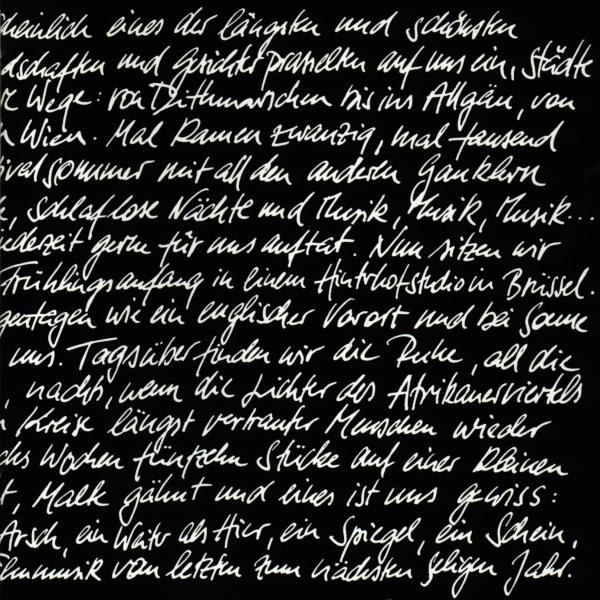 cheinlich eines der längsten und schönsten
dschaften und Gesichter prasselten auf uns ein, Städte
Wege: von Dithmarschen bis ins Allgäu, von
Wien. Mal kamen zwanzig, mal tausend
ivalsommer mit all den anderen Gauklern
schlaflose Nächte und Musik, Musik, Musik...
jederzeit gerne für uns auftat. Nun sitzen wir
Frühlingsanfang in einem Hinterhofstudio in Brüssel.
gentagen wie ein englischer Vorort und bei Sonne
uns. Tagsüber finden wir die Ruhe, all die
, nachts, wenn die Lichter des Afrikanerviertels
Kreise längst vertrauter Menschen wieder
chs Wochen fünfzehn Stücke auf einer kleinen
t, Malk gähnt und eines ist uns gewiss:
Arsch, ein Weiter als Hier, ein Spiegel, ein Schein,
lmmusik vom letzten zum nächsten seligen Jahr.